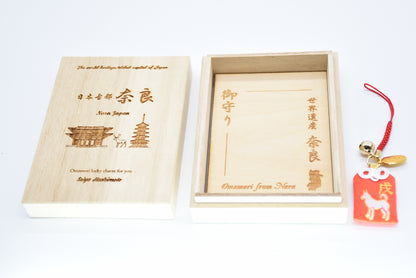 The world heritage, oldest capital of Japan
日本古都 奈良
Nara Japan
Omamori lucky charm for you
御守り
世界遺産 奈良
Omamori from Nara
戌